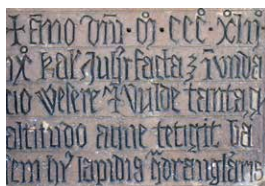 + Anno dm̄ · m̊ · ccc̊ · xlij̊ ·
ix kal' Aug facta ꝫ īunda
cio Wesere ⁊ Vulde tanta q
altitudo aque tetigit ba
sem hui' lapidis q̊drangularis